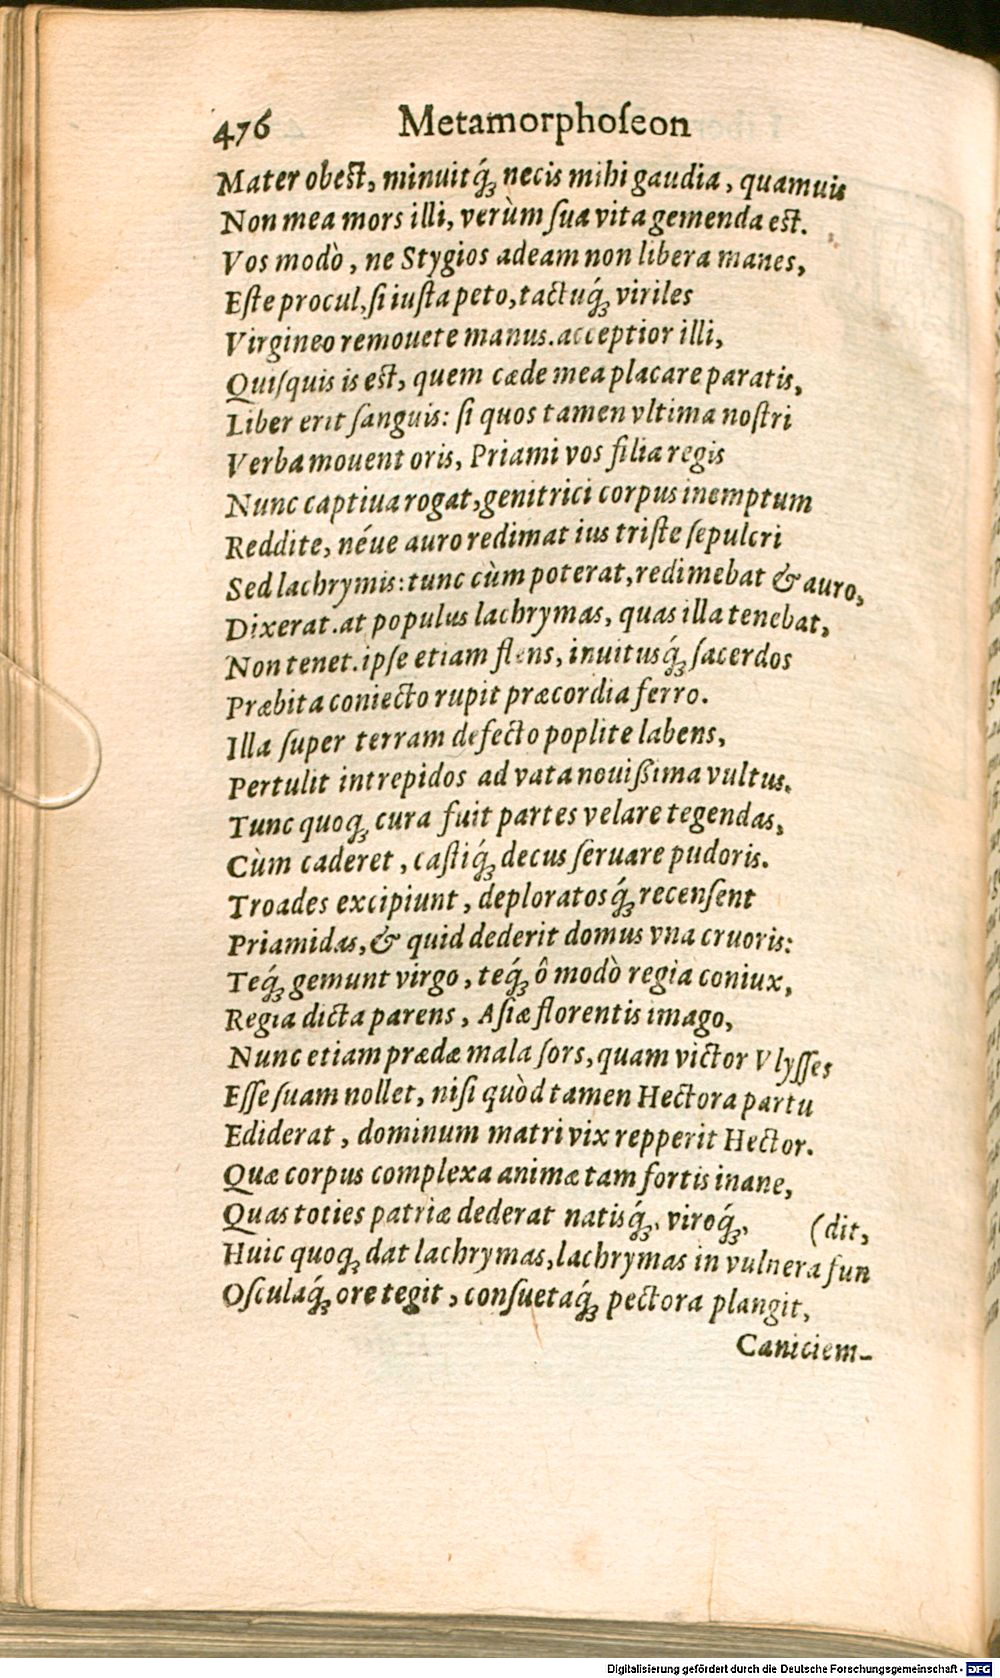 476 Metamorphoſeon
Mater obest, minuitq́ꝫ necis mihi gaudia, quamuis
Non mea mors illi, verùm ſua vita gemenda est.
Vos modò, ne Stygios adeam non libera manes,
Eſte procul, ſi iuſta peto, tactuq́ꝫ viriles
Virgineo remouete manus. acceptior illi,
Quiſquis is est, quem cæde mea placare paratis,
Liber erit ſanguis: ſi quos tamen vltima noſtri
Verba mouent oris, Priami vos filia regis
Nunc captiua rogat, genitrici corpus inemptum
Reddite, néue auro redimat ius triſte ſepulcri
Sed lachrymis: tunc cùm poterat, redimebat & auro,
Dixerat. at populus lachrymas, quas illa tenebat,
Non tenet. ipſe etiam flens, inuitusq́ꝫ ſacerdos
Præbita coniecto rupit præcordia ferro.
Illa ſuper terram defecto poplite labens,
Pertulit intrepidos ad vata nouißima vultus.
Tunc quoqꝫ cura fuit partes velare tegendas,
Cùm caderet, caſtiq́ꝫ decus ſeruare pudoris.
Troades excipiunt, deploratosq́ꝫ recenſent
Priamidas, & quid dederit domus vna cruoris:
Teq́ꝫ gemunt virgo, teq́ꝫ ô modò regia coniux,
Regia dicta parens, Aſiæ florentis imago,
Nunc etiam prædæ mala ſors, quam victor Vlyſſes
Eſſe ſuam nollet, niſi quòd tamen Hectora partu
Ediderat, dominum matri vix repperit Hector.
Quæ corpus complexa animæ tam fortis inane,
Quas toties patriæ dederat natisq́ꝫ, viroq́ꝫ, (dit,
Huic quoqꝫ dat lachrymas, lachrymas in vulnera fun
Oſculaq́ꝫ ore tegit, conſuetaq́ꝫ pectora plangit,
Caniciem-
Digitalisierung gefördert durch die Deutsche Forschungsgemeinschaft - DFG